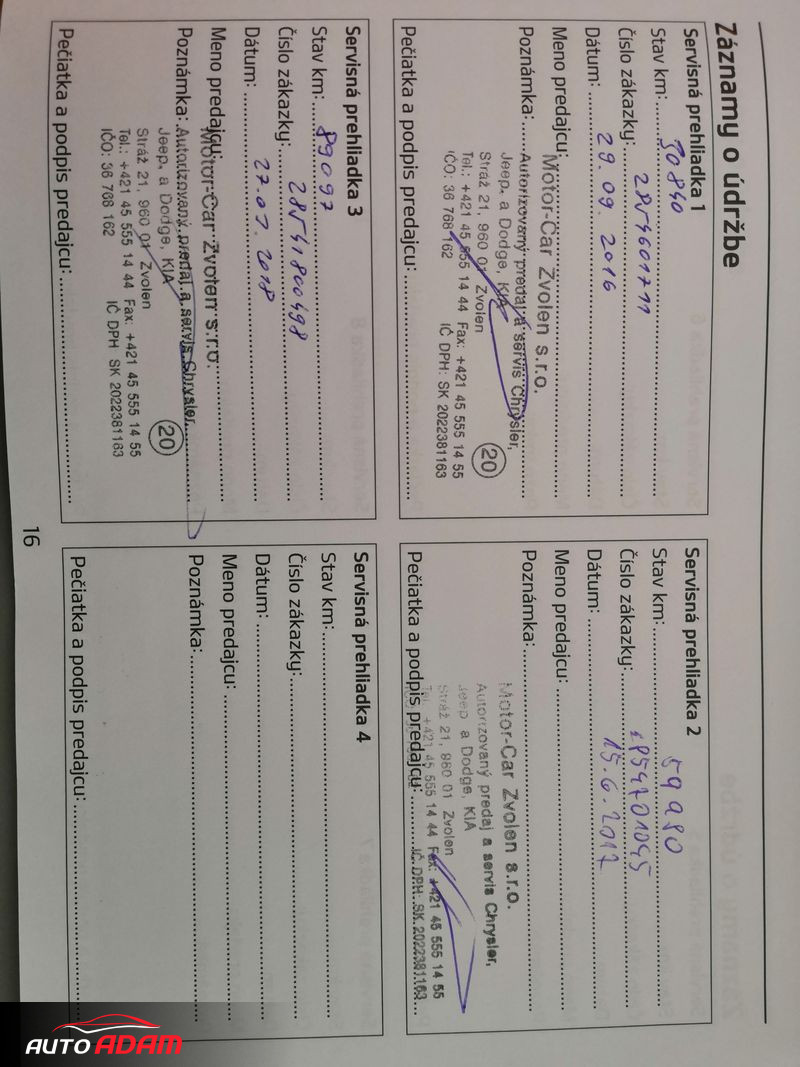 Záznamy o údržbe
Servisná prehliadka 1
Stav km: 30840
Číslo zákazky: 2854601711
Dátum: 29. 09. 2016
Meno predajcu:
Motor-Car Zvolen s.r.o.
Poznámka:
Autorizovaný predaj a servis Chrysler,
Jeep, a Dodge, KIA
Stráž 21, 960 01 Zvolen
20
Tel.: +421 45 555 14 44 Fax: +421 45 555 14 55
IČO: 36 768 162 IČ DPH: SK 2022381163
Pečiatka a podpis predajcu:
Servisná prehliadka 2
Stav km: 59980
Číslo zákazky: 2854701045
Dátum: 15. 6. 2017
Meno predajcu:
Motor-Car Zvolen s.r.o.
Poznámka:
Autorizovaný predaj a servis Chrysler,
Jeep a Dodge, KIA
Stráž 21, 960 01 Zvolen
Tel.: +421 45 555 14 44 Fax: +421 45 555 14 55
IČ DPH: SK 2022381163
Pečiatka a podpis predajcu:
Servisná prehliadka 3
Stav km: 89097
Číslo zákazky: 28541800498
Dátum: 27. 07. 2018
Meno predajcu:
Motor-Car Zvolen s.r.o.
Poznámka:
Autorizovaný predaj a servis Chrysler,
Jeep, a Dodge, KIA
Stráž 21, 960 01 Zvolen
20
Tel.: +421 45 555 14 44 Fax: +421 45 555 14 55
IČO: 36 768 162 IČ DPH: SK 2022381163
Pečiatka a podpis predajcu:
Servisná prehliadka 4
Stav km:
Číslo zákazky:
Dátum:
Meno predajcu:
Poznámka:
Pečiatka a podpis predajcu:
16
AUTO ADAM